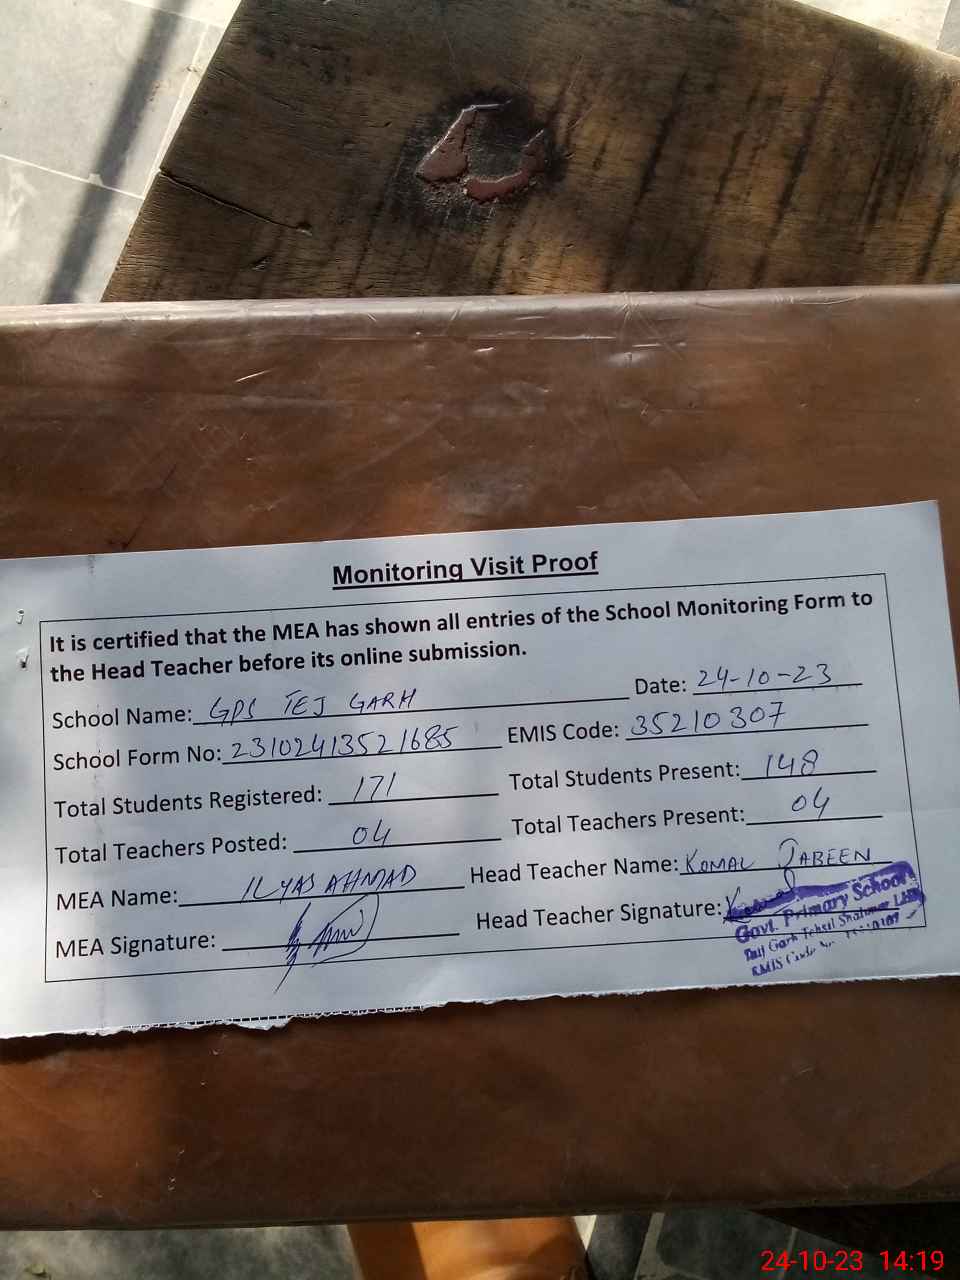 Monitoring Visit Proof
It is certified that the MEA has shown all entries of the School Monitoring Form to
the Head Teacher before its online submission.
School Name: GPS TEJ GARH Date: 24-10-23
School Form No: 23102413521685 EMIS Code: 35210307
Total Students Registered: 171 Total Students Present: 148
Total Teachers Posted: 04 Total Teachers Present: 04
MEA Name: ILYAS AHMAD Head Teacher Name: KOMAL JABEEN
MEA Signature: Head Teacher Signature: Komal
Govt. Primary School
Garh Tehsil Shalimar
EMIS Code
24-10-23 14:19